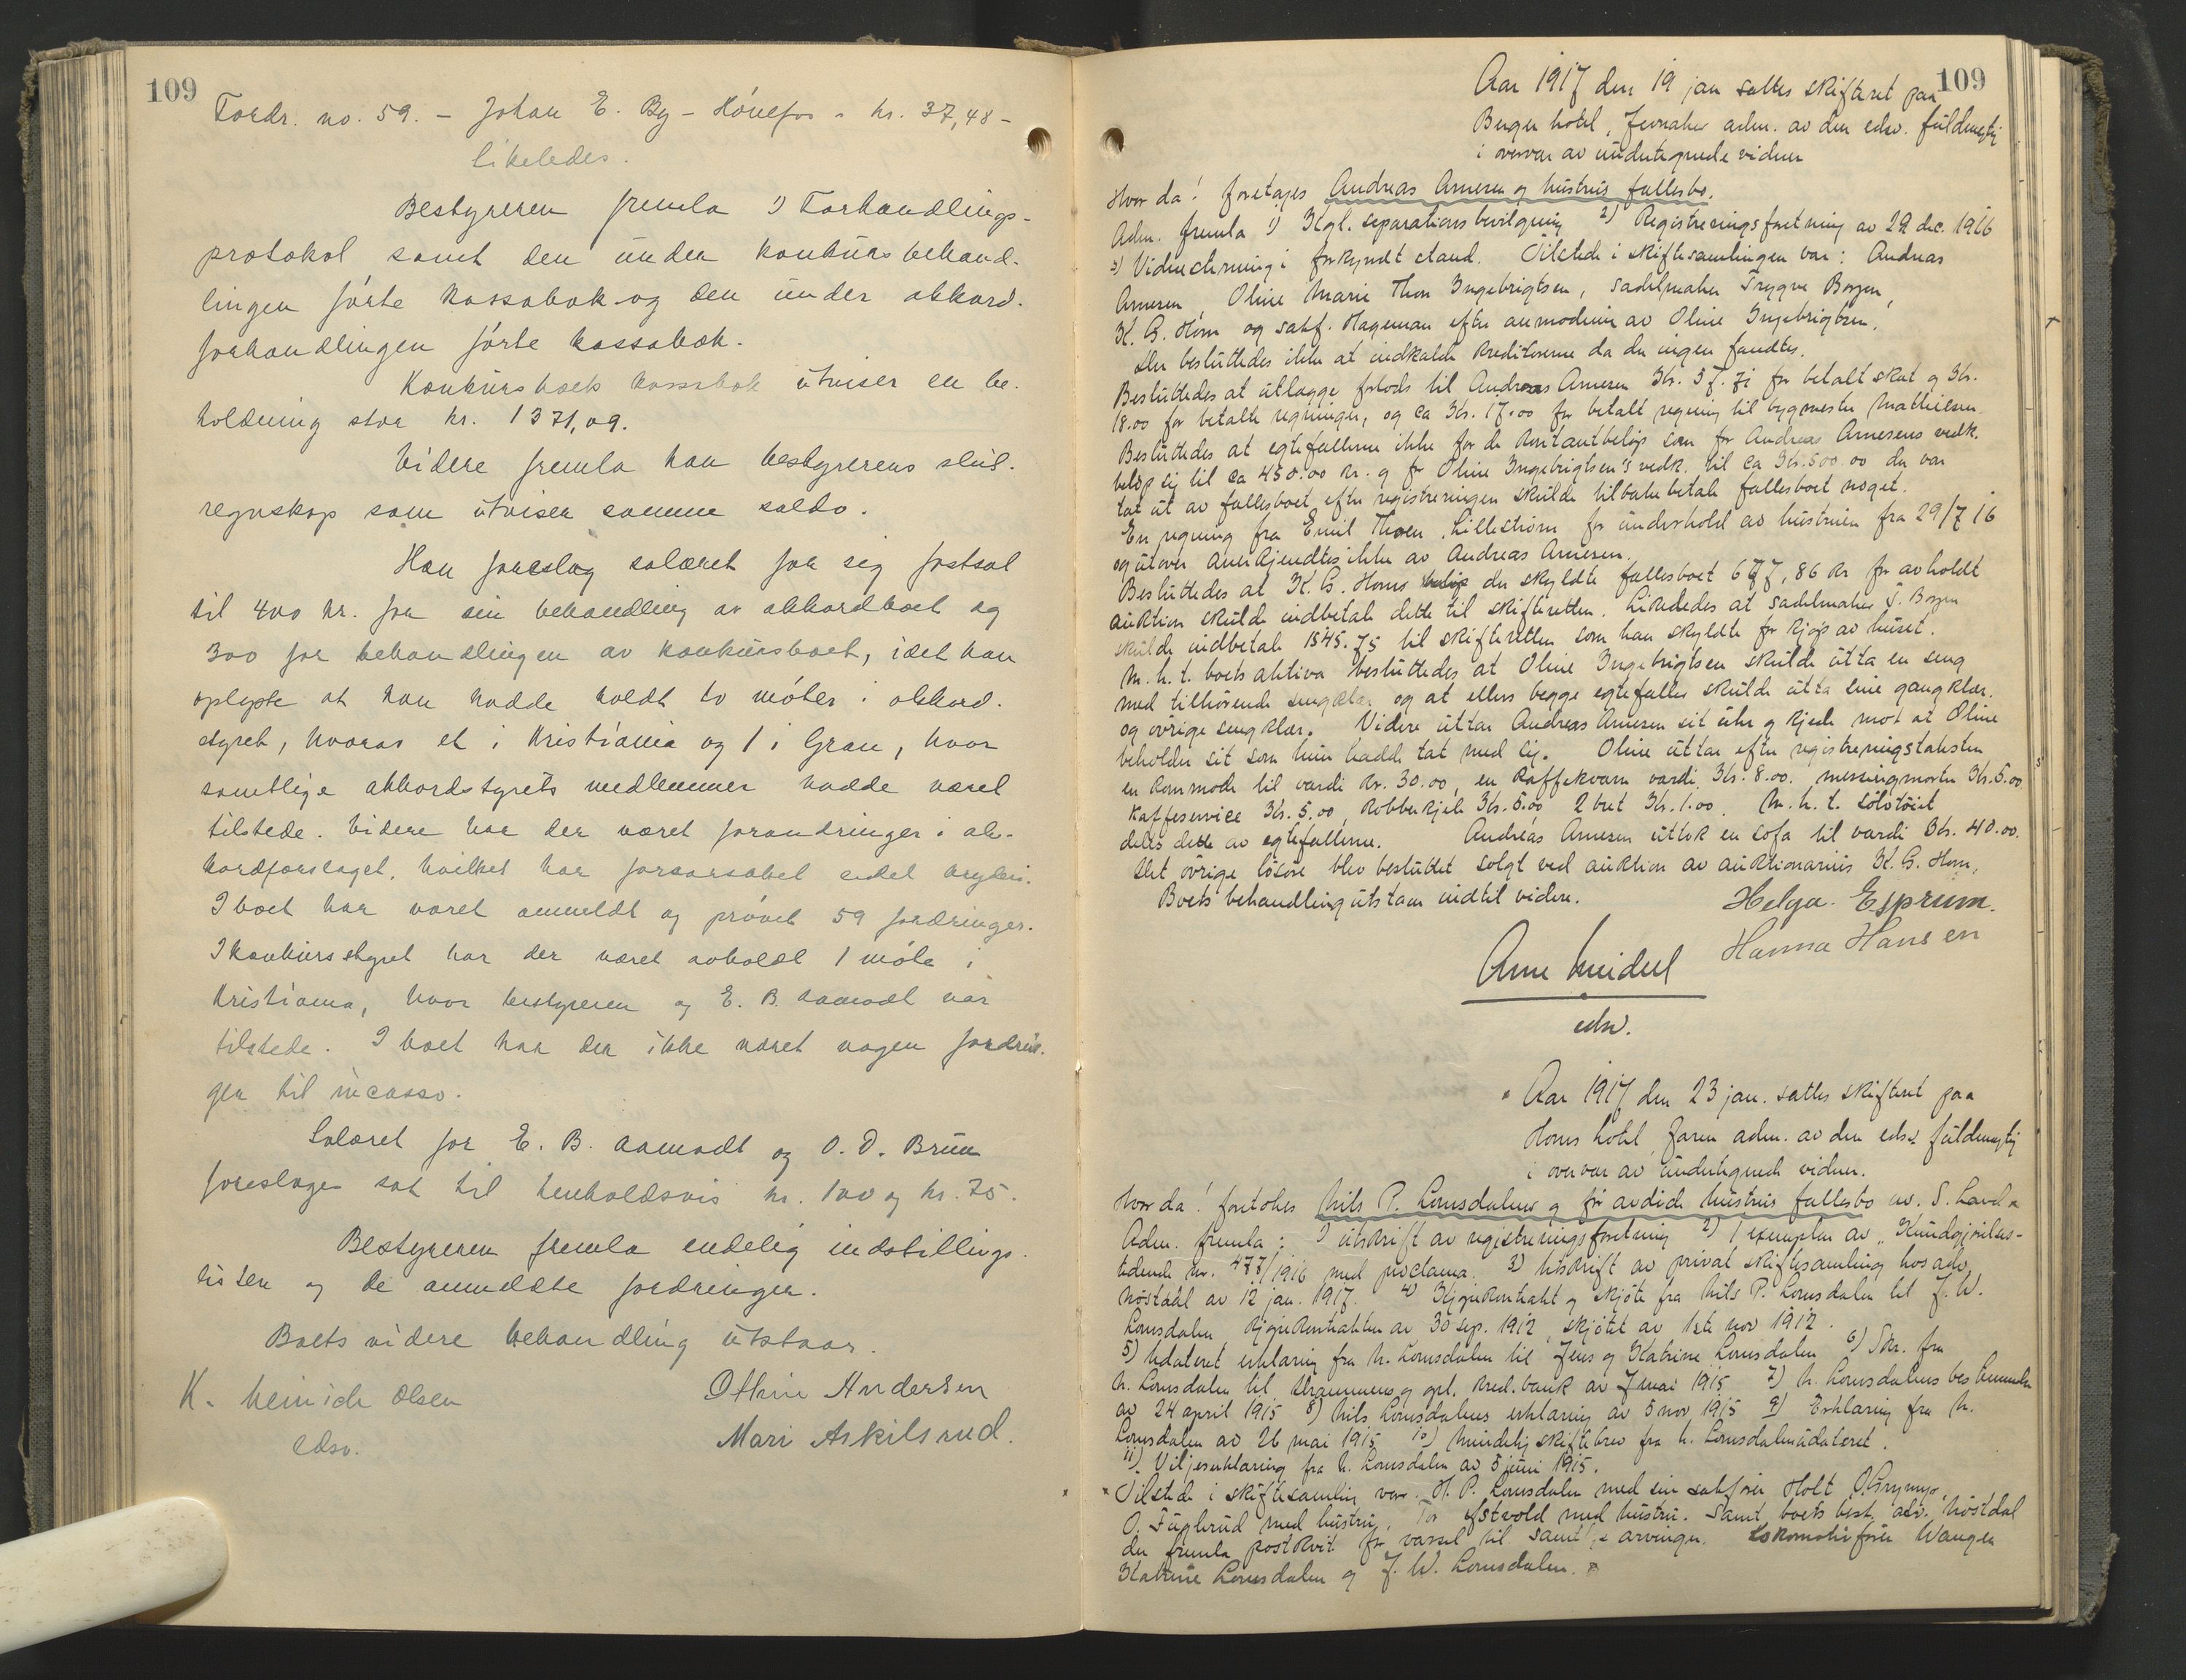 109
Fordr. no. 59. - Johan E. By - Hónefos - kr. 37,48 -
likeledes.
Bestyreren fremla 1) Forhandlings-
protokol, samt den under konkursbehand-
lingen førte kassabok og den under akkord-
forhandlingen førte kassabok.
Konkursboets kassabok utviser en be-
holdning stor kr. 1371,09.
Videre fremla han bestyrerens slut-
regnskap som utviser samme saldo.
Han foreslog salæret for sig fastsat
til 400 kr. for sin behandling av akkordboet og
300 for behandlingen av konkursboet, idet han
oplyste at han hadde holdt to møter i akkord-
styret, hvorav et i Kristiania og 1 i Gran, hvor
samtlige akkordstyrets medlemmer hadde været
tilstede. Videre har der været forandringer i ak-
kordforslaget, hvilket har forarsaket endel bryderi.
I boet har været anmeldt og prøvet 59 fordringer.
I konkursstyret har der været avholdt 1 møte i
Kristiania, hvor bestyreren og E. B. Aamodt var
tilstede. I boet har der ikke været nogen fordrin-
ger til incasso.
Salæret for E. B. Aamodt og O. D. Bruun
foreslages sat til henholdsvis kr. 100 og kr. 75.
Bestyreren fremla endelig indstillings-
listen og de anmeldte fordringer.
Boets videre behandling utstaar.
K. Heinich Olsen Othine Andersen
edsv. Mari Askilsrud.
109
Aar 1917 den 19 jan sattes skifteret paa
Berger hotel, Jevnaker adm. av den edsv. fuldmegtig
i overvær av undertegnede vidner
Hvorda! foretages Andreas Arnesen og hustrus fællesbo.
Adm. fremla 1) Kgl. separationsbevilgning 2) Registreringsforretning av 29 dec. 1916
3) Vidnestevning i forkyndt stand. Tilstede i skiftesamlingen var: Andreas
Arnesen, Oline Marie Thon Ingebrigtsen, sadelmaker Trygve Borgen,
K. G. Horn og sakf. Hageman efter anmodning av Oline Ingebrigtsen.
Der besluttedes ikke at indkalde kreditorerne da der ingen fandtes.
Besluttedes at utlægge forlods til Andreas Arnesen Kr. 37.71 for betalt skat og Kr.
18.00 for betalte regninger, og ca Kr. 17.00 for betalt regning til bygmester Mathiesen
Besluttedes at egtefællerne ikke for de kontantbeløp som for Andreas Arnesens vedk.
beløp sig til ca 450.00 kr. og for Oline Ingebrigtsen's vedk. til ca Kr. 500.00 der var
tat ut av fællesboet efter registreringen skulde tilbakebetale fællesboet noget.
En regning fra Emil Thoen, Lillestrøm for underhold av hustruen fra 29/7 16
og utover anerkjendtes ikke av Andreas Arnesen.
Besluttedes at K. G. Horns beløp der skyldte fællesboet 677,86 kr for avholdt
auktion skulde indbetale dette til skifteretten. Likeledes at sadelmaker T. Borgen
skulde indbetale 1545.75 til skifteretten som han skyldte for kjøp av huset.
M. h. t. boets aktiva besluttedes at Oline Ingebrigtsen skulde utta en seng
med tilhørende sengeklær og at ellers begge egtefæller skulde utta sine gangklær
og øvrige sengklær. Videre uttar Andreas Arnesen sit uhr og kjede mot at Oline
beholder sit som hun hadde tat med sig. Oline uttar efter registreringstaksten
en kommode til værdi kr. 30.00, en kaffekværn værdi Kr. 8.00. messingmorter Kr. 5.00
Kaffeservice Kr. 5.00, kobberkjele Kr. 5.00 2 bret Kr. 1.00. M. h. t. sølvtøiet
deles dette av egtefællerne. Andreas Arnesen uttok en sofa til værdi Kr. 40.00.
Det øvrige løsøre blev besluttet solgt ved auktion av auktionarius K. G. Horn,
Boets behandling utstaar indtil videre. Helga Esprum.
Hanna Hansen
Arne Meidell
edsv.
Aar 1917 den 23 jan. sattes skifteret paa
Horns hotel, Jaren adm. av den edsv. fuldmegtig
i overvær av undertegnede vidner.
Hvorda! foretokes Nils P. Lomsdalens og før avdøde hustrus fællesbo av S. Land.
Adm. fremla: 1) utskrift av registreringsforretning 2) 1 exemplar av "Kundgjørelses-
tidende nr. 477/1916 med proclama. 3) Utskrift av privat skiftesamling hos adv.
Nøstdal av 12 jan. 1917. 4) Kjøpekontrakt og skjøte fra Nils P. Lomsdalen til J. W.
Lomsdalen, kjøpekontrakten av 30 sep. 1912, skjøtet av 1ste nov 1912.
5) Udateret erklæring fra N. Lomsdalen til Jens og Katrine Lomsdalen 6) Skr. fra
N. Lomsdalen til Drammens og opl. kred.bank av 7 mai 1915 7) N. Lomsdalens bestemmelse
av 24 april 1915 8) Nils Lomsdalens erklæring av 5 nov 1915 9) Erklæring fra N.
Lomsdalen av 26 mai 1915 10) Mindelig skiftebrev fra N. Lomsdalen udateret.
11) Viljeserklæring fra N. Lomsdalen av 5 juni 1915.
Tilstede i skiftesamling var. H. P. Lomsdalen med sin sakfører Holt,
O. Fuglerud med hustru, Tor Ystvold med hustru. Samt boets best. adv. Nøstdal
der fremla postkvit. for varsel til samtlige arvinger. Lokomotivfører Wangen
Katrine Lomsdalen og J. W. Lomsdalen.